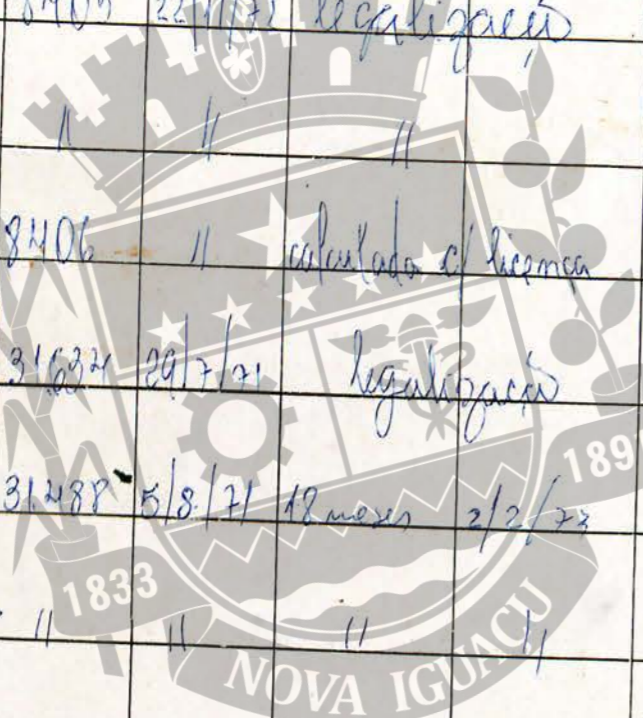 legalização
" " "
8406 " calculado c/ licença
29/7/71 legalização
31.488 5/8/71 18 meses 2/2/73
" " " "
1833
189
NOVA IGUAÇU